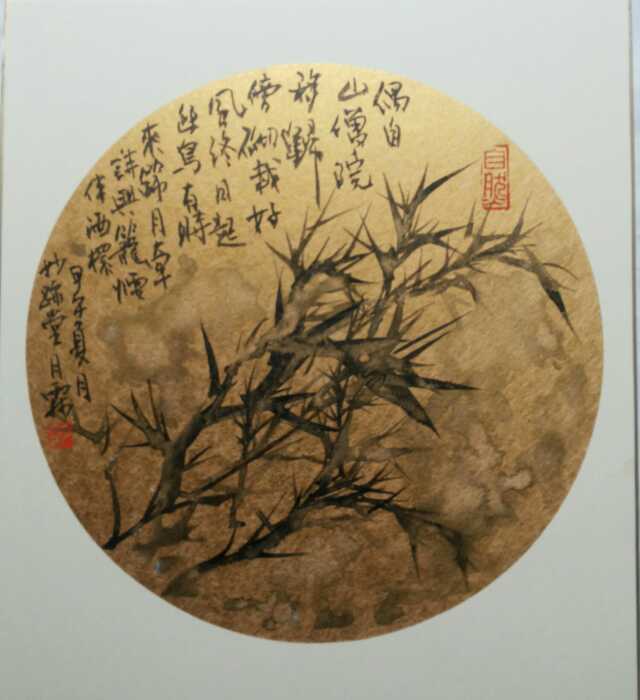 偶自
山僧院
移歸
傍砌栽好
風終日起
幽鳥有時
來篩月牽
詩興籠煙
伴酒
甲午夏月
妙堂月